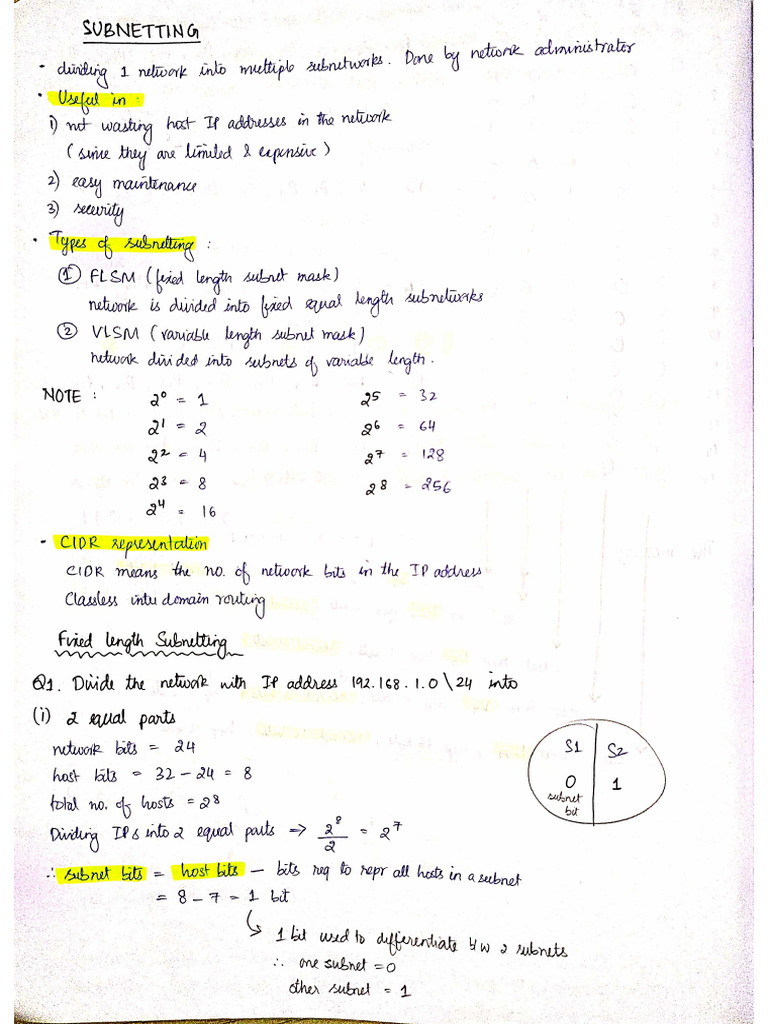 SUBNETTING
- dividing 1 network into multiple subnetworks. Done by network administrator
• Useful in :
1) not wasting host IP addresses in the network
(since they are limited & expensive)
2) easy maintenance
3) security
• Types of subnetting :
① FLSM (fixed length subnet mask)
network is divided into fixed equal length subnetworks
② VLSM (variable length subnet mask)
network divided into subnets of variable length.
NOTE : 2⁰ = 1 2⁵ = 32
2¹ = 2 2⁶ = 64
2² = 4 2⁷ = 128
2³ = 8 2⁸ = 256
2⁴ = 16
- CIDR representation
CIDR means the no. of network bits in the IP address
Classless inter domain routing
Fixed length Subnetting
Q1. Divide the network with IP address 192.168.1.0\24 into
(i) 2 equal parts
network bits = 24
host bits = 32 - 24 = 8
total no. of hosts = 2⁸
Dividing IPs into 2 equal parts => 2⁸/2 = 2⁷
S1 S2
0 1
subnet
bit
∴ subnet bits = host bits - bits req to repr all hosts in a subnet
= 8 - 7 = 1 bit
↳ 1 bit used to differentiate b/w 2 subnets
∴ one subnet = 0
other subnet = 1